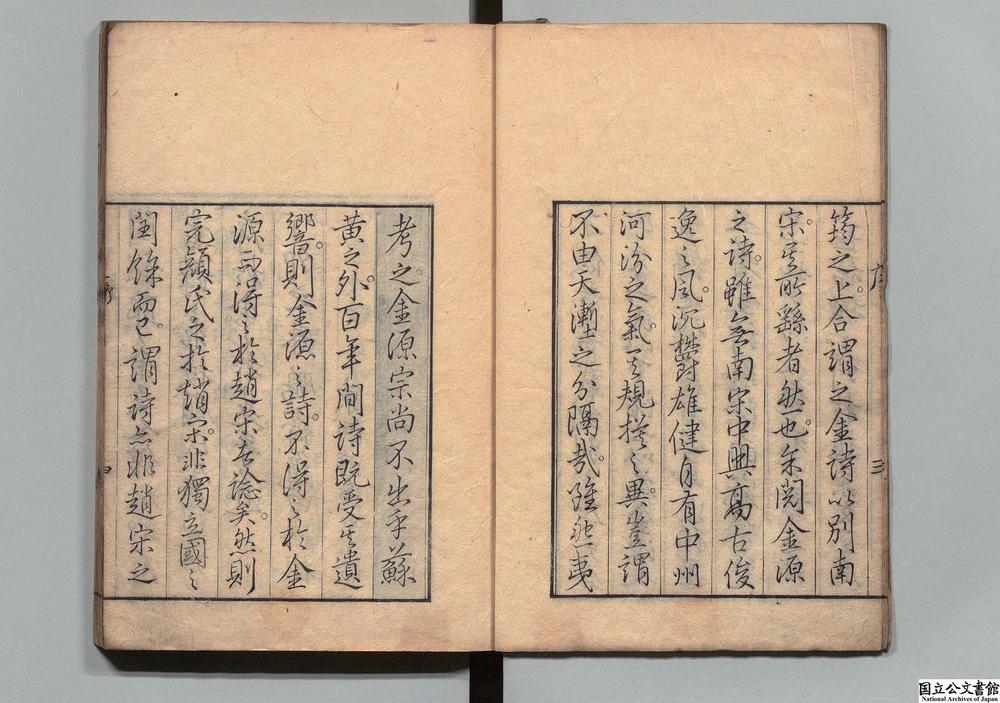 筠之上。合謂之金詩以別南
宋。其所繇者然也。余閱金源
之詩。雖無南宋中興高古俊
逸之風。沉欝雄健自有中州
河汾之氣。其規撫之異。豈謂
不由天塹之分隔哉。雖然夷
序
三
考之。金源宗尚不出乎蘇
黃之外。百年間詩既受其遺
響。則金源之詩。不得之於金
源而得之於趙宋在諗矣。然則
完顏氏之於趙宋。非獨立國之
閏餘而已。謂詩亦非趙宋之
序
四
国立公文書館
National Archives of Japan